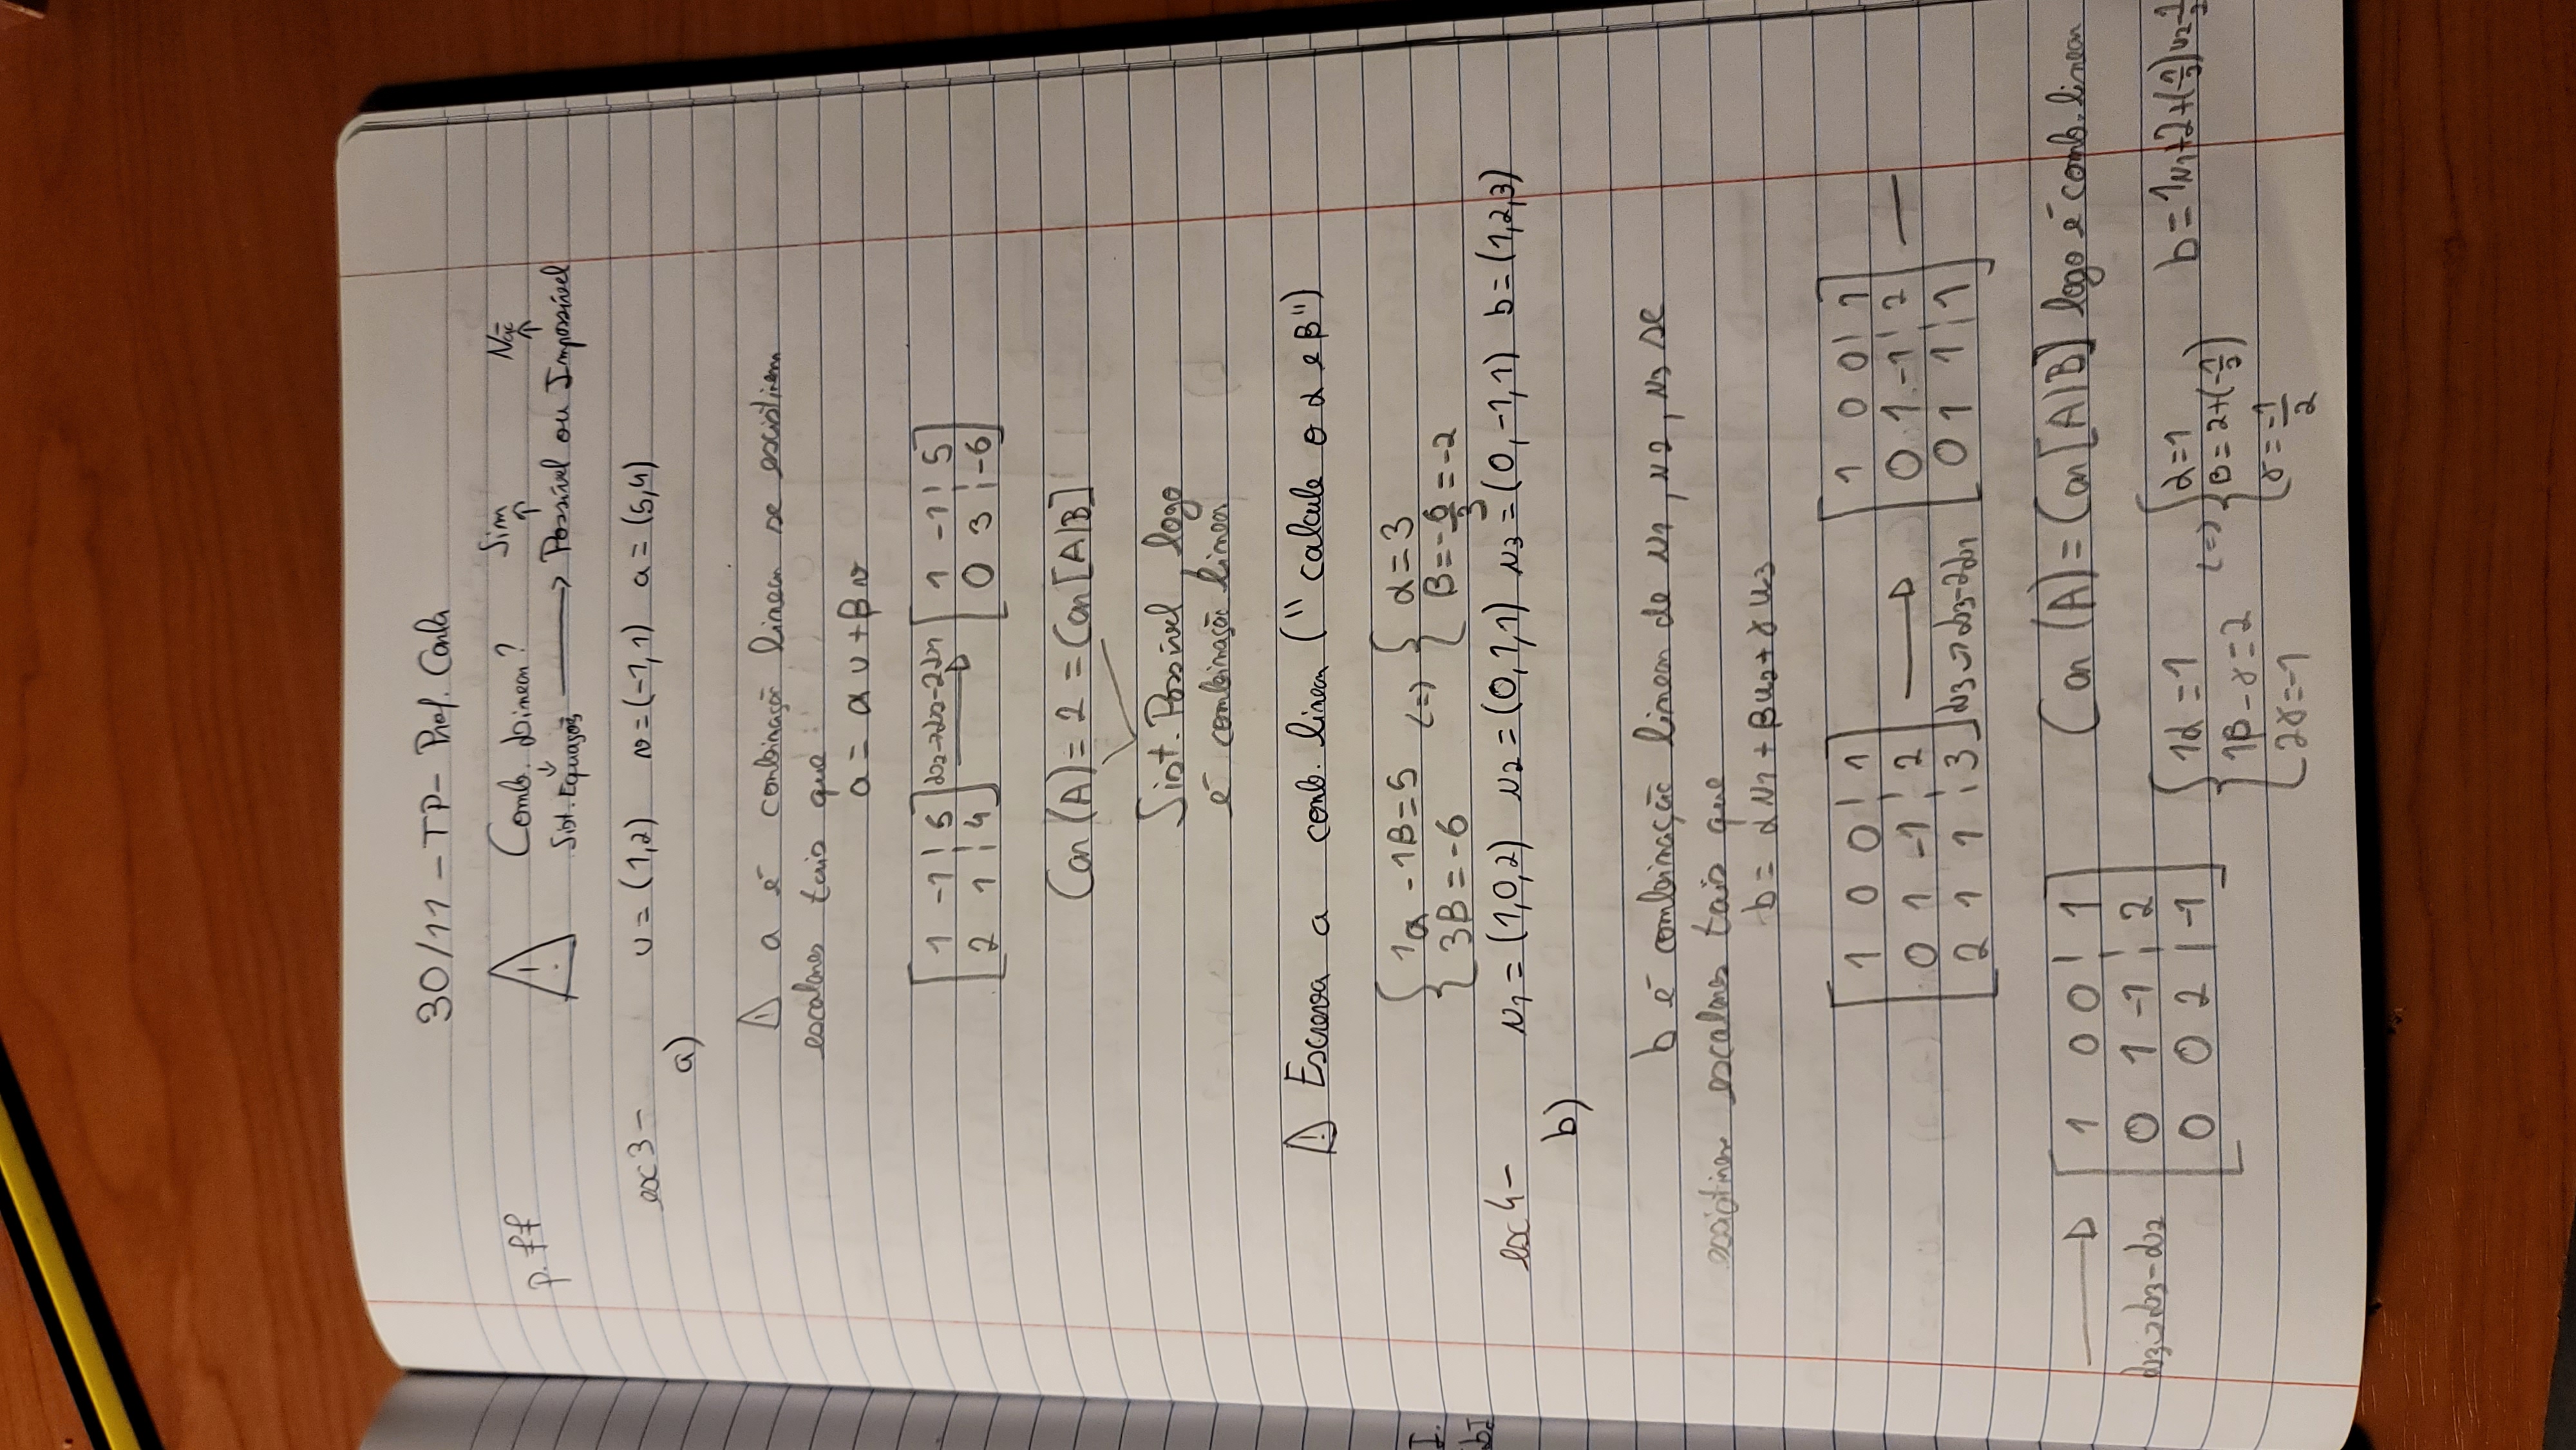 30/11 - TP - Prof. Carla
p. 77
⚠ Comb. Linear? Sim Não
↓ ↑ ↑
Sist. Equações → Possível ou Impossível
ex 3 - u = (1,2) v = (-1,1) a = (5,4)
a)
⚠ a é combinação linear se existirem
escalares tais que:
a = α u + β v
[1 -1 ¦ 5; 2 1 ¦ 4] L2→L2-2L1 [1 -1 ¦ 5; 0 3 ¦ -6]
Car (A) = 2 = Car [A|B]
Sist. Possível, logo
é combinação linear
⚠ Escreva a comb. linear ("calcule o α e β")
{1α - 1β = 5; 3β = -6 <=> {α = 3; β = -6/3 = -2
ex 4 - u1 = (1,0,2) u2 = (0,1,1) u3 = (0,-1,1) b = (1,2,3)
b)
b é combinação linear de u1, u2, u3 se
existirem escalares tais que
b = α u1 + β u2 + γ u3
[1 0 0 ¦ 1; 0 1 -1 ¦ 2; 2 1 1 ¦ 3] → L3→L3-2L1 [1 0 0 ¦ 1; 0 1 -1 ¦ 2; 0 1 1 ¦ 1] —
→ L3→L3-L2 [1 0 0 ¦ 1; 0 1 -1 ¦ 2; 0 0 2 ¦ -1] Car (A) = Car [A|B] logo é comb. linear
{1α = 1; 1β - γ = 2; 2γ = -1 <=> {α = 1; β = 2 + (-1/2); γ = -1/2 b = 1u1 + 2 + (-1/2) u2 - 1/2
I.